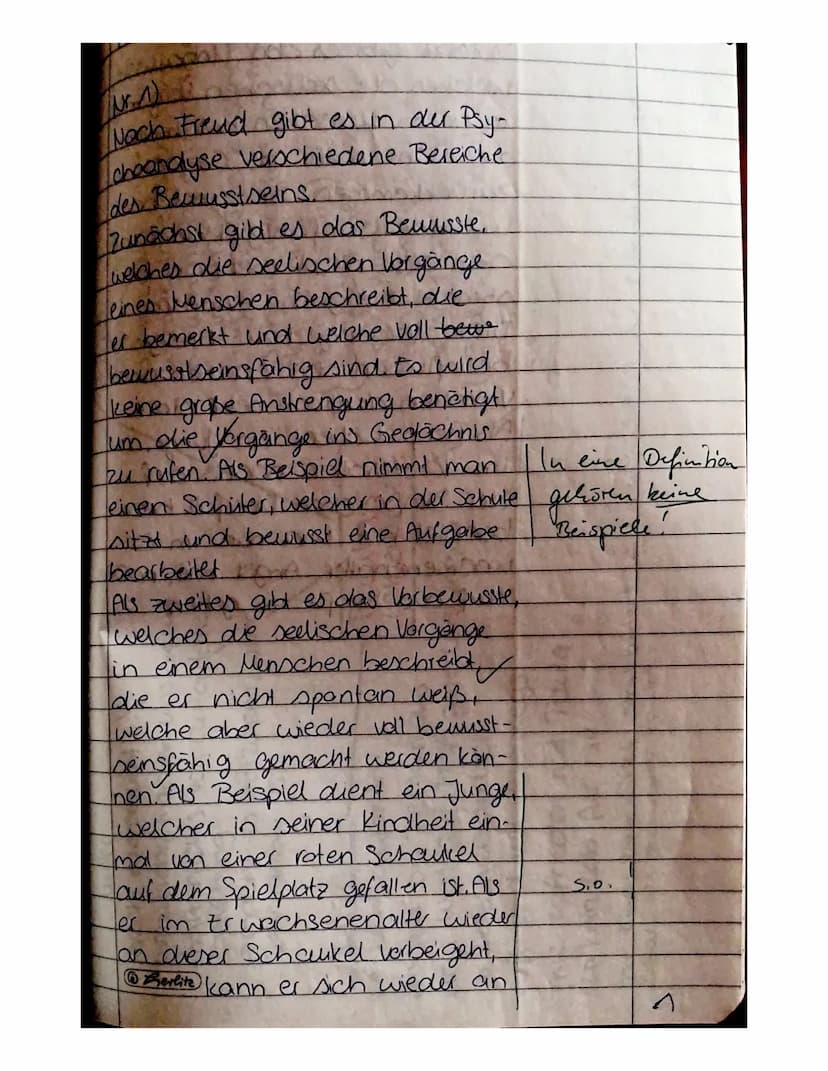 Nr. 1)
Nach Freud gibt es in der Psy-
choandyse verschiedene Bereiche
des Bewusstseins.
Zunächst gibt es das Bewusste,
welches die seelischen Vorgänge
eines Menschen beschreibt, die
er bemerkt und welche voll bewus
bewusstseinsfähig sind. Es wird
keine große Anstrengung benötigt
um die Vorgänge ins Gedächnis
zu rufen. Als Beispiel nimmt man
einen Schüler, welcher in der Schule
sitzt und bewusst eine Aufgabe
bearbeitet
In eine Definition
gehören keine
Beispiele!
Als zweites gibt es das Vorbewusste,
welches die seelischen Vorgänge
in einem Menschen beschreibt,
die er nicht spontan weiß,
welche aber wieder voll bewusst-
seinsfähig gemacht werden kön-
nen. Als Beispiel dient ein Junge,
welcher in seiner Kindheit ein-
mal von einer roten Schaukel
auf dem Spielplatz gefallen ist. Als
s.o.
er im Erwachsenenalter wieder
an dieser Schaukel vorbeigeht,
kann er sich wieder an
1